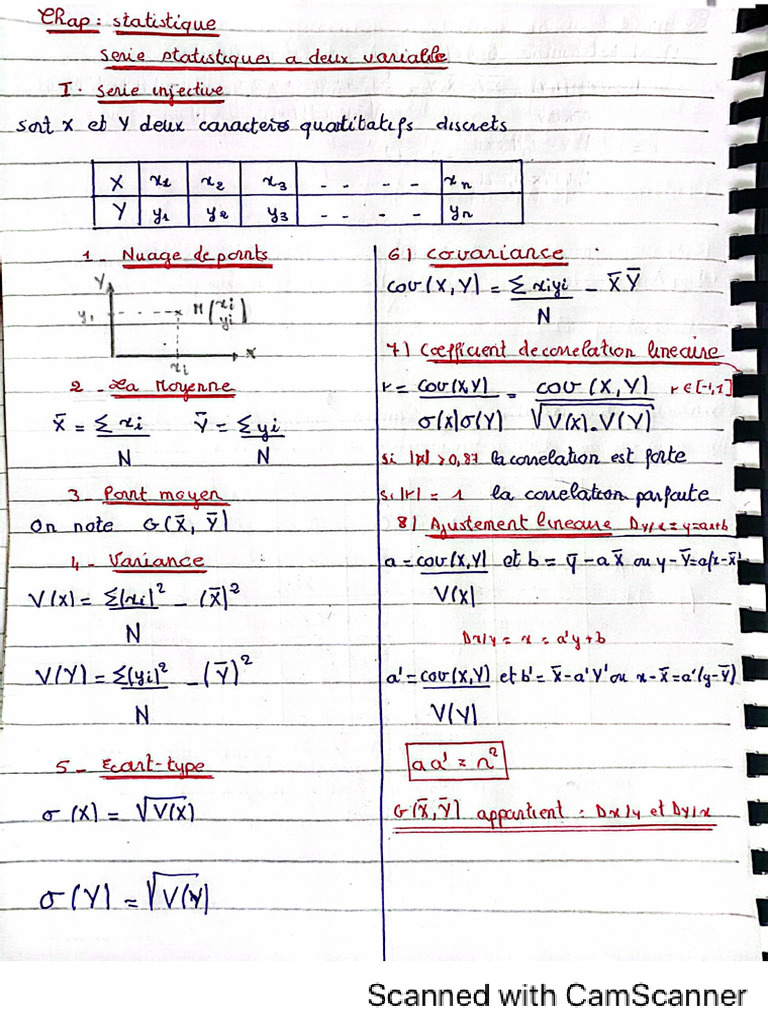 Chap : statistique
serie statistiques a deux variable
I. serie injective
soit X et Y deux caracteres quatitatifs discrets
X x1 x2 x3 - - - - - xn
Y y1 y2 y3 - - - - yn
1 - Nuage de points
Y
y1 M(xi yi)
X
xi
2 - La Moyenne
X̄ = Σxi/N Ȳ = Σyi/N
3 - Point moyen
On note G(X̄, Ȳ)
4 - Variance
V(x) = Σ(xi)²/N - (X̄)²
V(Y) = Σ(yi)²/N - (Ȳ)²
5 - Ecart-type
σ(X) = √V(X)
σ(Y) = √V(Y)
6) Covariance
cov(X,Y) = Σxiyi/N - X̄Ȳ
7) Coefficient de correlation lineaire
r = cov(X,Y)/σ(x)σ(Y) = cov(X,Y)/√V(x).V(Y) r∈[-1,1]
si |r| > 0,87 la correlation est forte
si |r| = 1 la correlation parfaite
8) Ajustement lineaire Dy/x = y=ax+b
a = cov(X,Y)/V(X) et b = ȳ - aX̄ ou y-Ȳ=a(x-X̄)
Dx/y = x = a'y+b
a' = cov(X,Y)/V(Y) et b' = X̄-a'Y' ou x-X̄=a'(y-Ȳ)
aa' = r²
G(X̄,Ȳ) appartient : Dx/y et Dy/x
Scanned with CamScanner